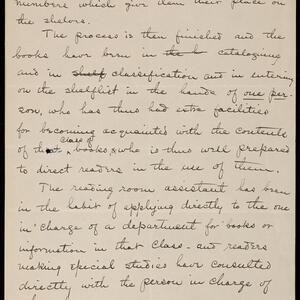 numbers which give them their place on
the shelves.
The process is then finished and the
books have been in the h cataloguing
and in shelf classification and in entering
on the shelflist in the hands of one per-
son, who has thus had extra facilities
for becoming acquainted with the contents
of that class of books, & who is thus well prepared
to direct readers in the use of them.
The reading room assistant has been
in the habit of applying directly to the one
in charge of a department for books or
information in that class - and readers
making special studies have consulted
directly with the person in charge of